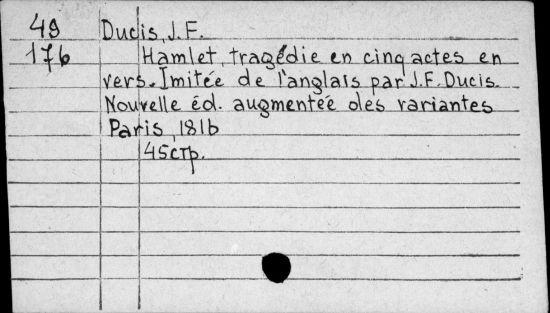 49 Ducis, J.F.
176 Hamlet, tragédie en cinq actes en
vers. Imitée de l'anglais par J.F. Ducis.
Nouvelle éd. augmentéé des variantes
Paris, 1816
45стр.